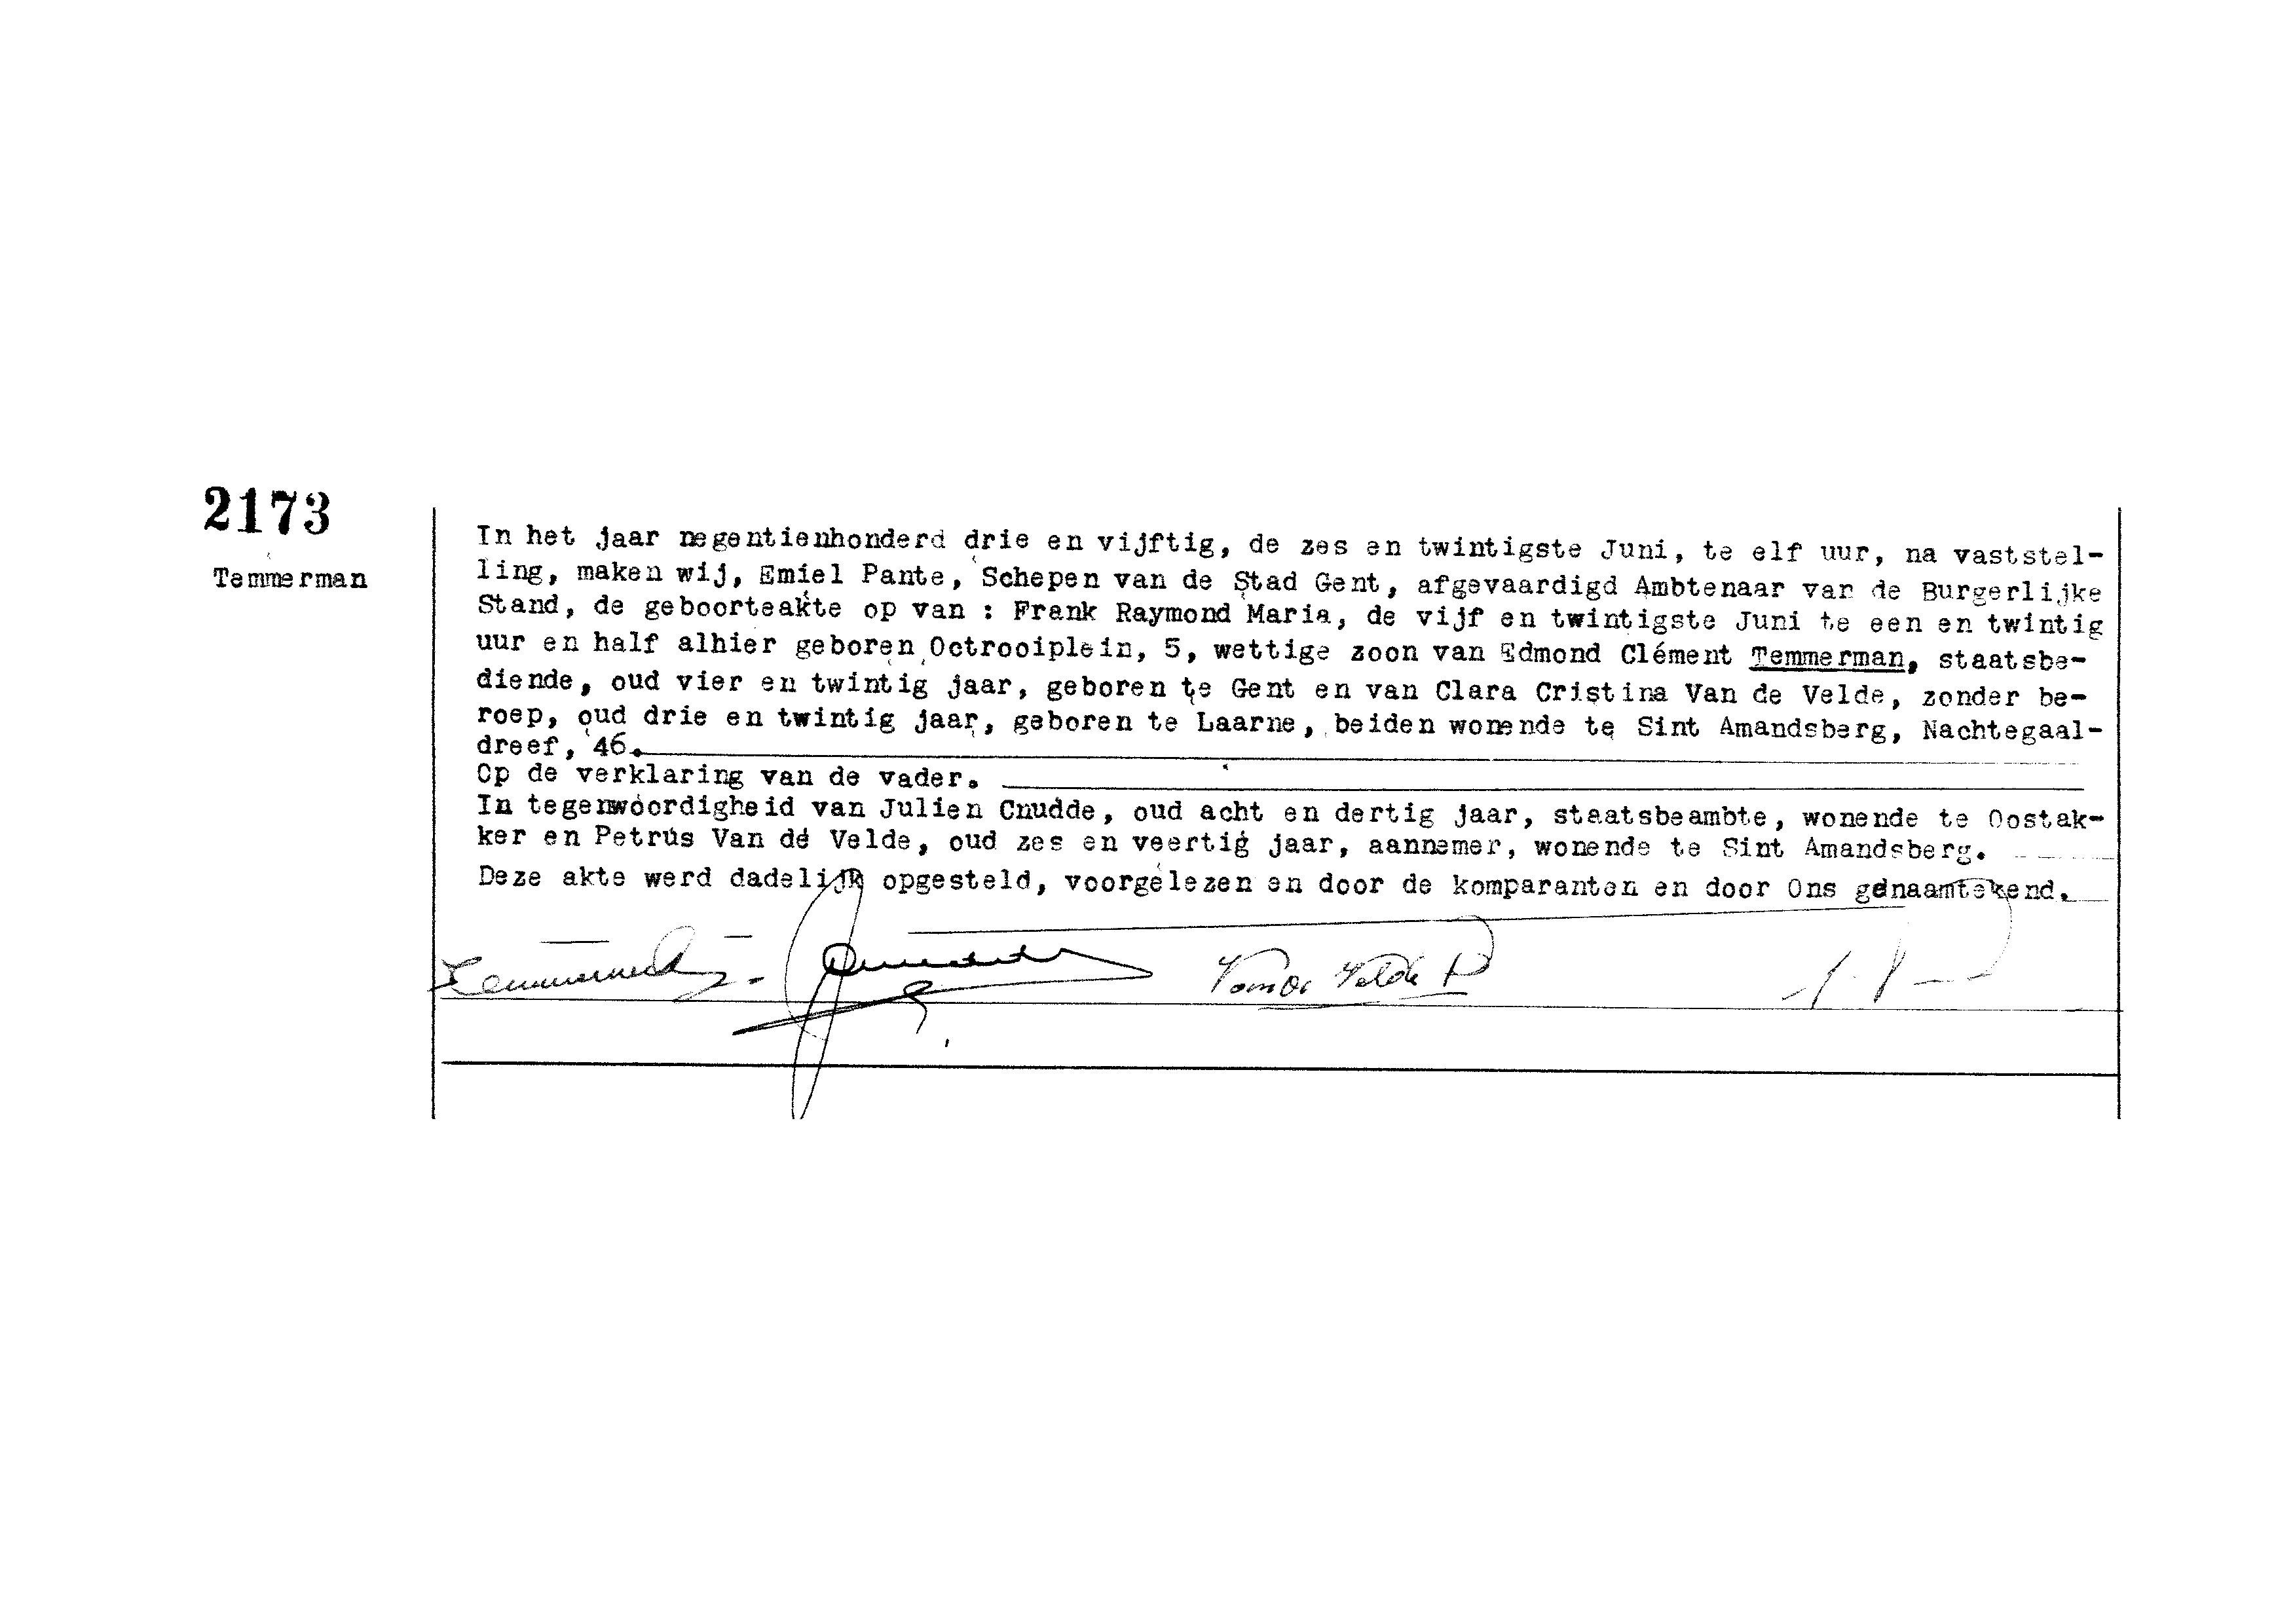 2173
Temmerman
In het jaar negentienhonderd drie en vijftig, de zes en twintigste Juni, te elf uur, na vaststel-
ling, maken wij, Emiel Pante, Schepen van de Stad Gent, afgevaardigd Ambtenaar van de Burgerlijke
Stand, de geboorteakte op van : Frank Raymond Maria, de vijf en twintigste Juni te een en twintig
uur en half alhier geboren Octrooiplein, 5, wettige zoon van Edmond Clément Temmerman, staatsbe-
diende, oud vier en twintig jaar, geboren te Gent en van Clara Cristina Van de Velde, zonder be-
roep, oud drie en twintig jaar, geboren te Laarne, beiden wonende te Sint Amandsberg, Nachtegaal-
dreef, 46.
Op de verklaring van de vader.
In tegenwoordigheid van Julien Cnudde, oud acht en dertig jaar, staatsbeambte, wonende te Oostak-
ker en Petrus Van de Velde, oud zes en veertig jaar, aannemer, wonende te Sint Amandsberg.
Deze akte werd dadelijk opgesteld, voorgelezen en door de komparanten en door Ons genaamtekend.
Van de Velde P